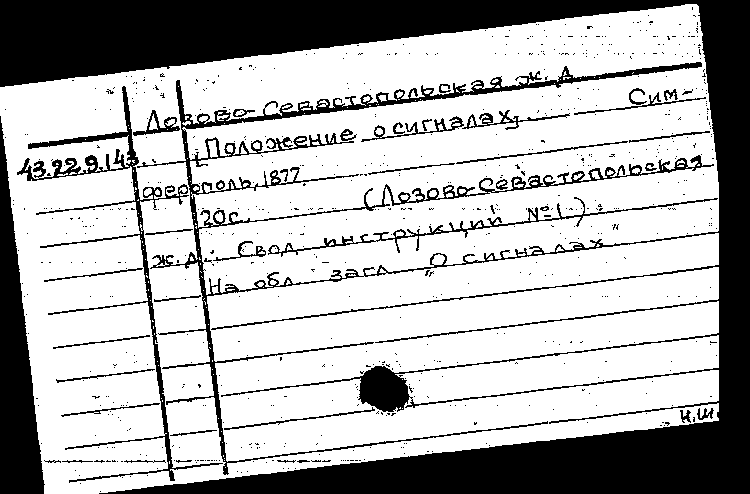 Лозово-Севастопольская ж. д
43.22.9.143. [Положение о сигналах]. Сим-
ферополь, 1877.
20 с. (Лозово-Севастопольская
ж. д. Свод инструкций №1.)
На обл. загл. „О сигналах"
Н.Ш.